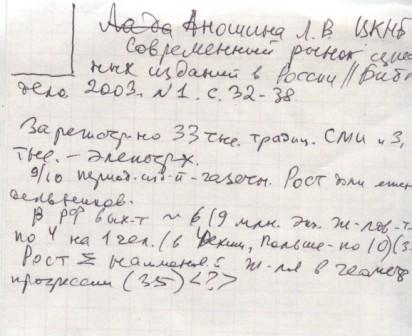 Лада Аношина Л.В ЦКНБ
Современный рынок
ных изданий в России // Библ
дело 2003. N1. с. 32-38.
Зарегистр-но 33 тыс. традиц. СМИ и 3,
тыс. – электр-х.
9/10 период. изд-й – газеты. Рост доли еже
дельников.
В РФ вых-т ~ 619 млн. экз. ж-лов
по 4 на 1 чел. (в Чехии, Польше - по 10)
Рост Σ наименов.й ж-ла в геометр
прогрессии (35) <?>